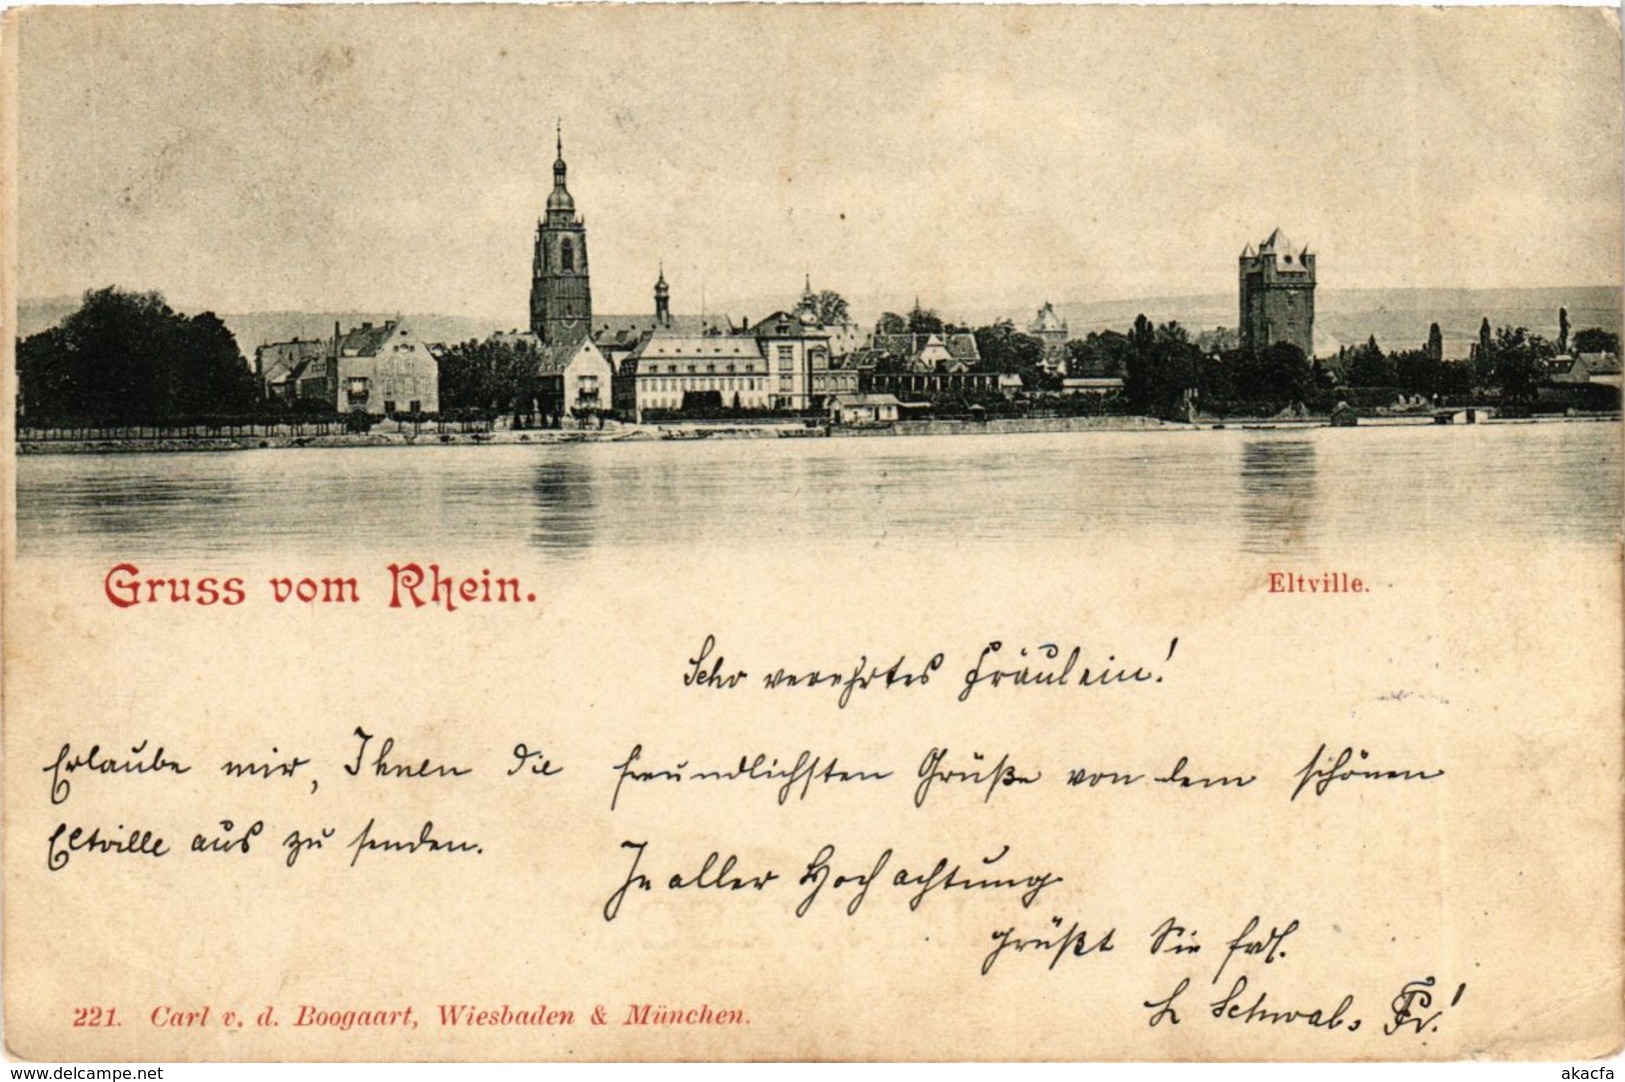 Gruss vom Rhein.
Eltville.
Sehr verehrtes Fräulein!
Erlaube mir, Ihnen die freundlichsten Grüße von dem schönen
Eltville aus zu senden.
In aller Hochachtung
grüßt Sie frdl.
L Schwab,
221. Carl v. d. Boogaart, Wiesbaden & München.
www.delcampe.net
akacfa